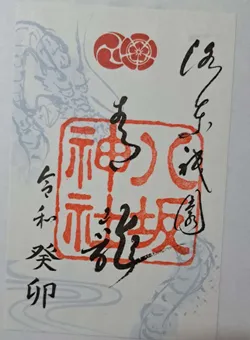 洛東祇園
青龍
八坂神社
令和癸卯